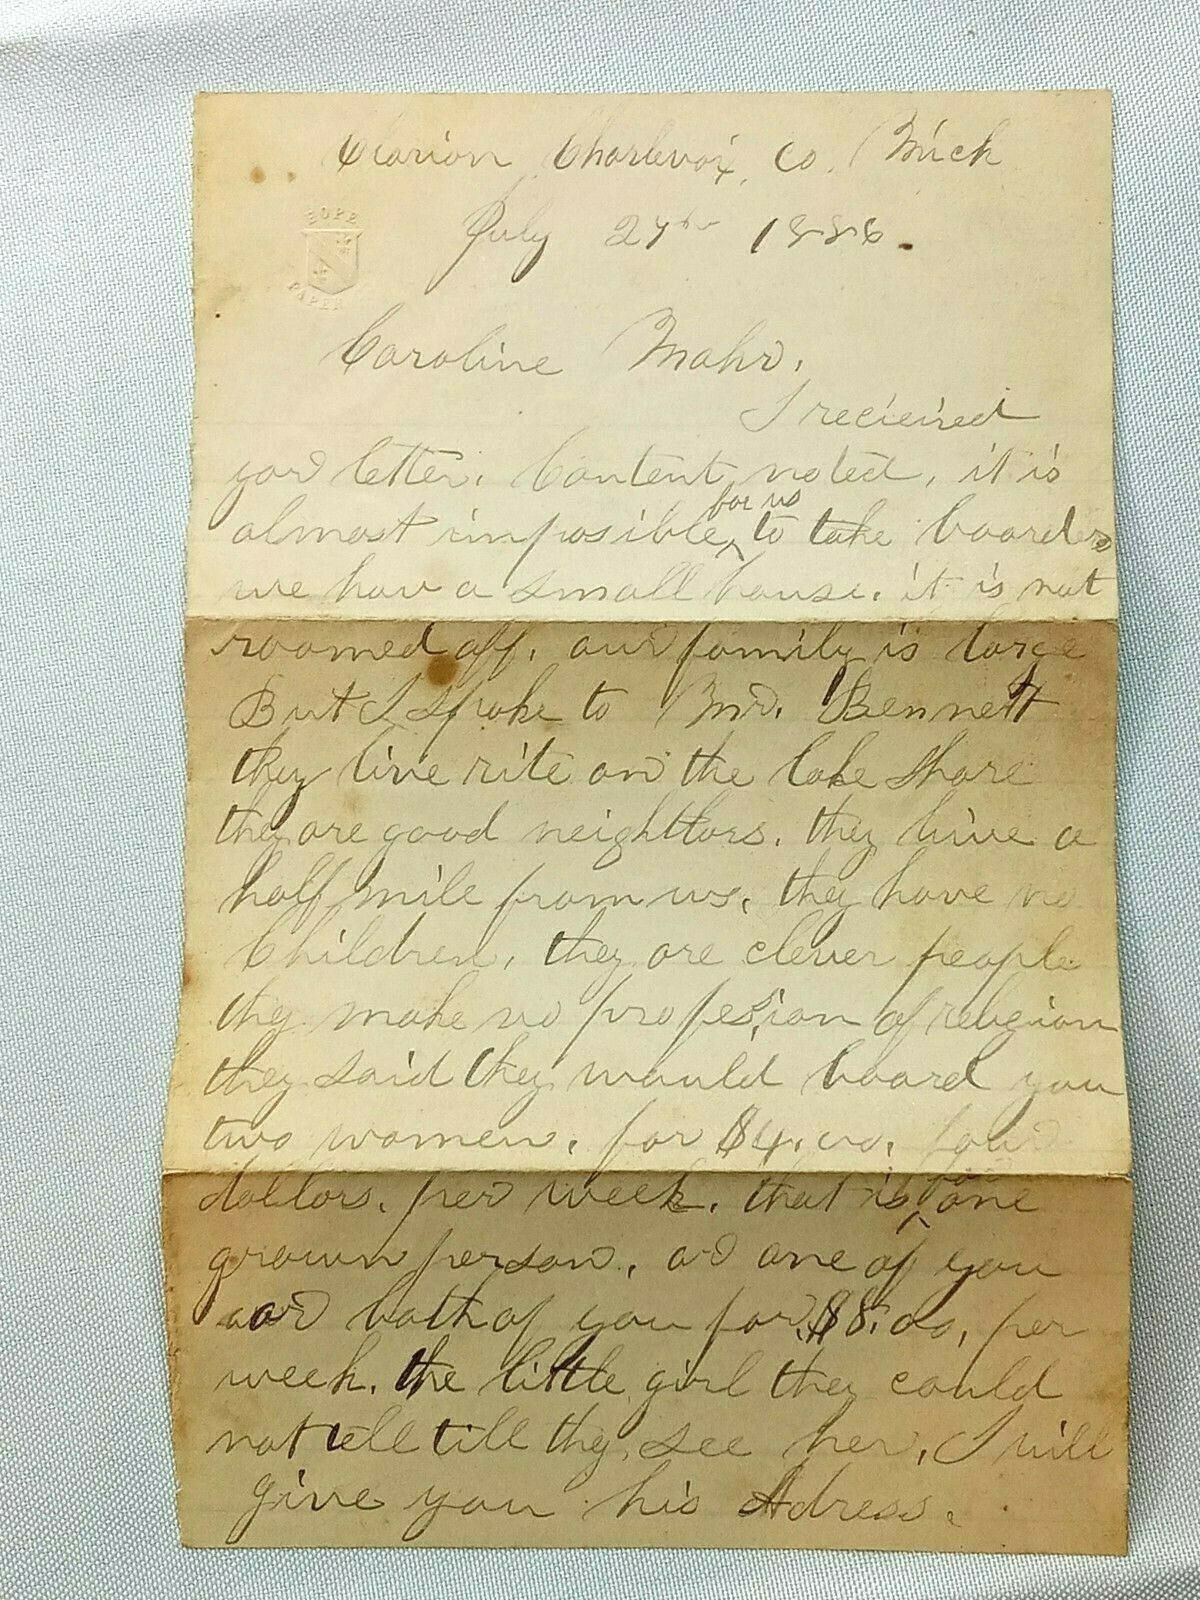 Clarion Charlevoix, Co, Mich
July 27th 1886.
HOPE
PAPER
Caroline Mahr.
I recieived
your letter. Content, noted, it is
for us
almost imposible, to take boarders
we hav a small house. it is not
roomed off. our family is large
But I spoke to Mr. Bennett
they live rite on the lake shore
they are good neighttors. they live a
half mile from us, they have no
Children, they are clever people
they make no profession of religion
they said they would board you
two women, for $4.00, four
dollors. per week. that is for one
grown person, or one of you
aor both of you for $8.00, per
week. the little girl they could
not tell till they see her, I will
give you his Adress.